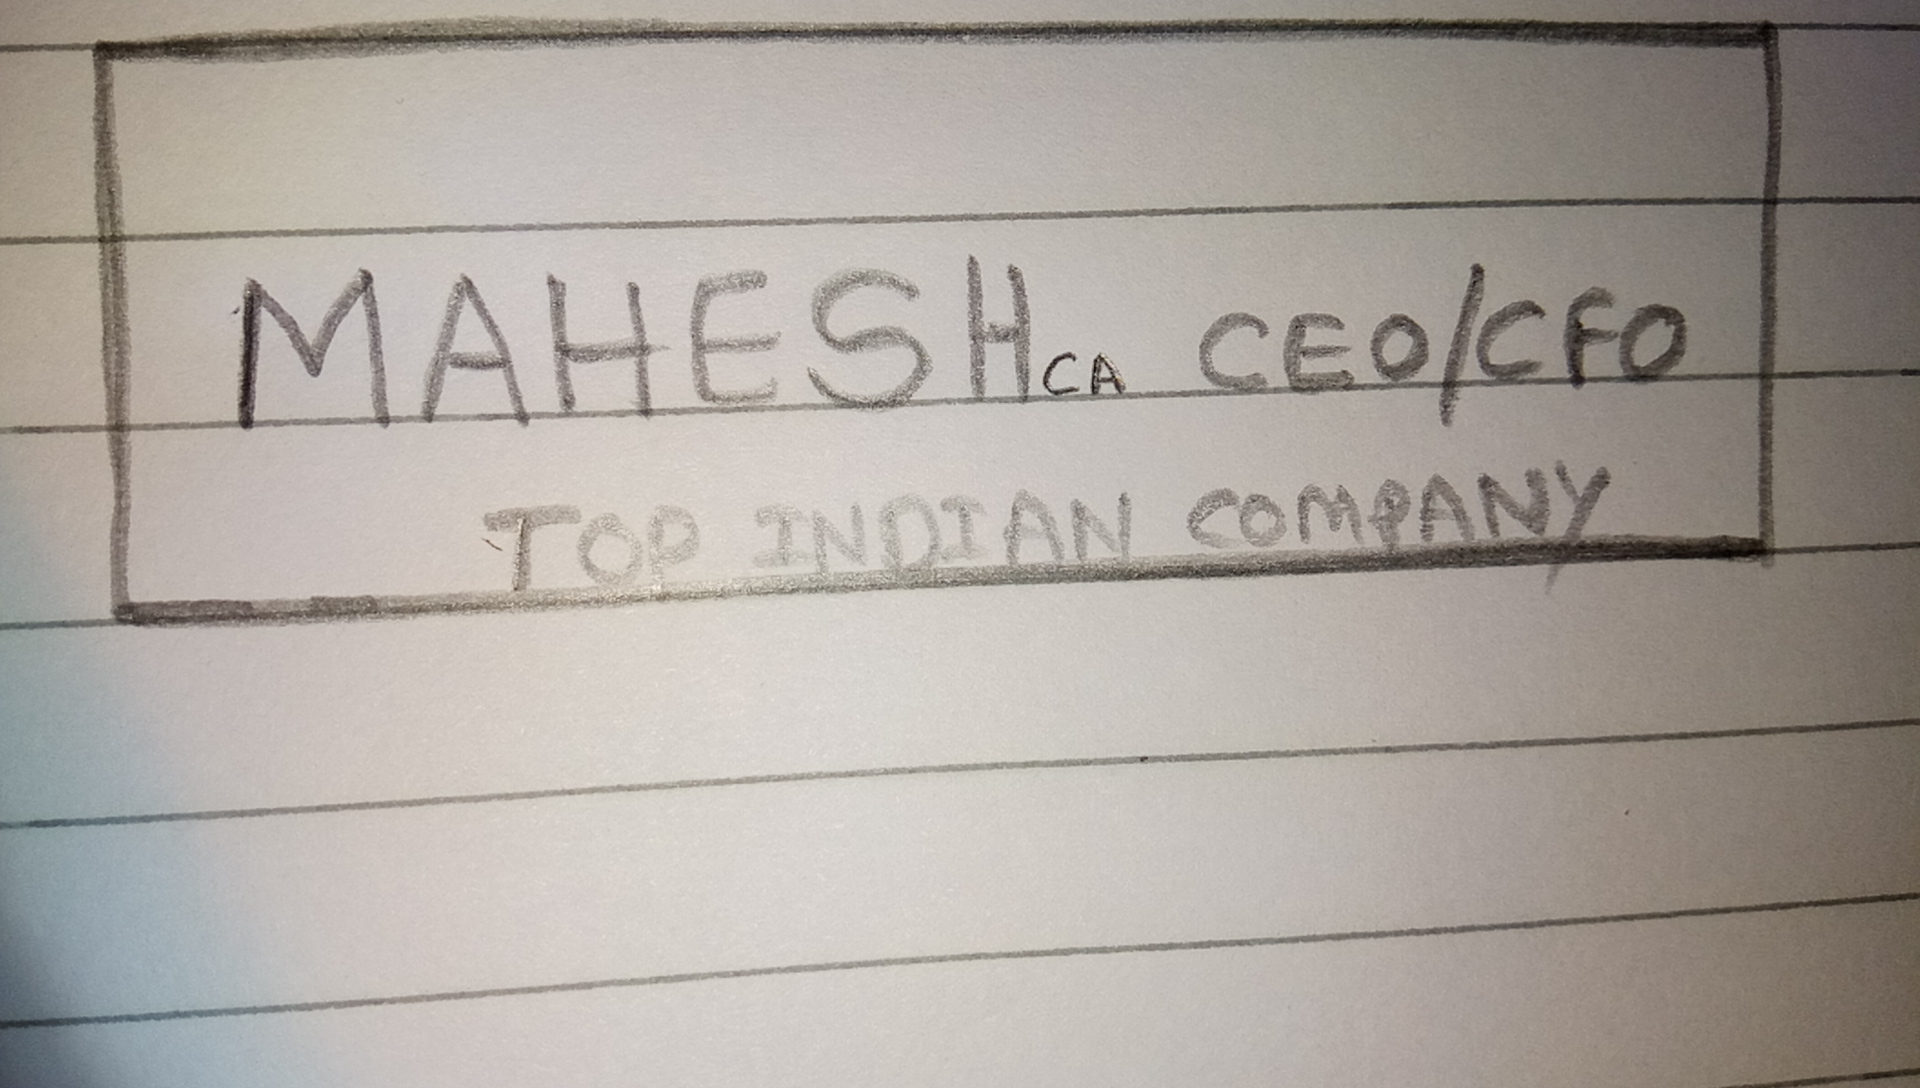 MAHESH CA CEO/CFO
TOP INDIAN COMPANY